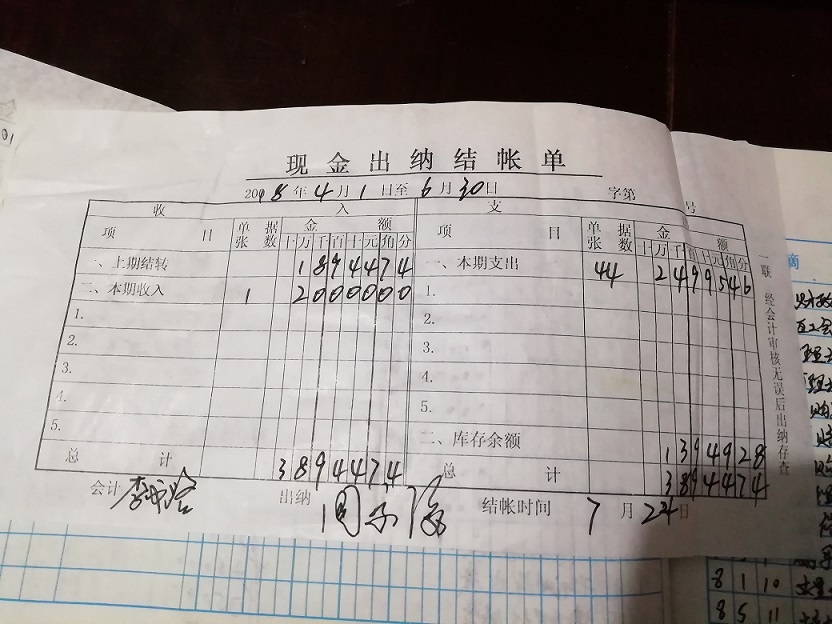 现金出纳结帐单
2008年4月1日至6月30日 字第 号
收 入 支
项 目 单据张数 金额 项 目 单据张数 金额
十万千百十元角分 十万千百十元角分
一、上期结转 1894474 一、本期支出 44 2499546
二、本期收入 1 2000000 1.
1. 2.
2. 3.
3. 4.
4. 5.
5. 二、库存余额 1394928
总 计 3894474 总 计 3894474
会计 出纳 结帐时间 7月24日
一联 经会计审核无误后出纳存查
摘
8 1 10
8 5 11